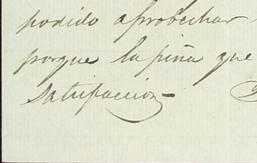 podido aprobechar
porque la piña que
satisfaccion